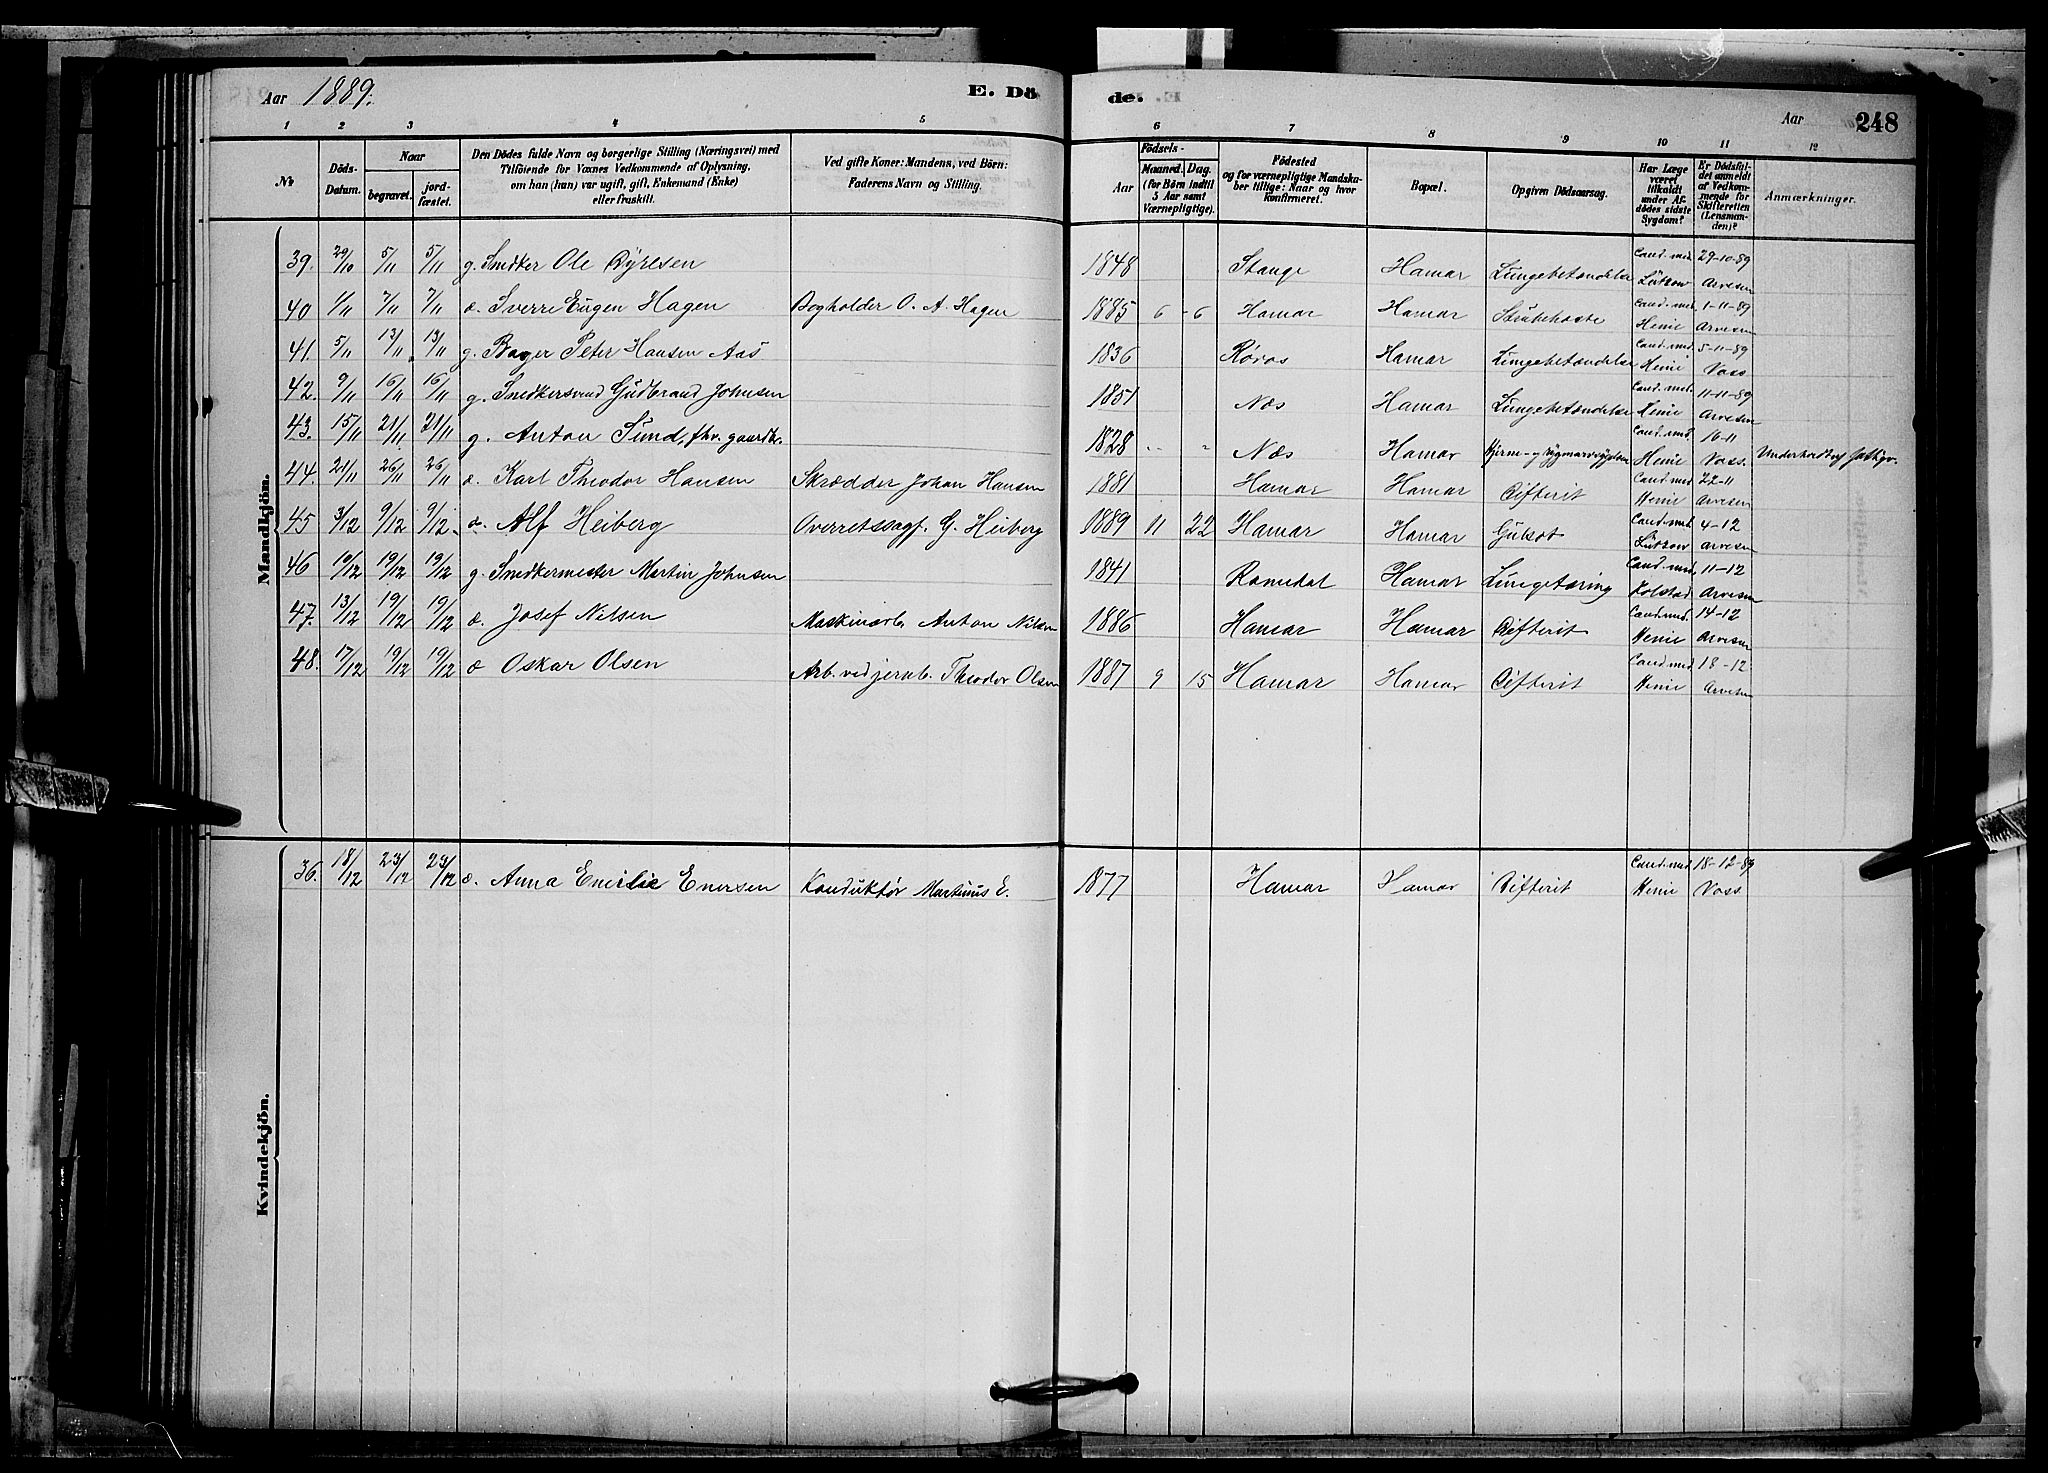 Aar 1889.
E. Dö
de.
Aar
248
1 2 3 4 5 6 7 8 9 10 11 12
№
Döds-
Datum.
Naar
begravet.
jord-
fæstet.
Den Dödes fulde Navn og borgerlige Stilling (Næringsvei) med
Tilföiende for Voxnes Vedkommende af Oplysning,
om han (hun) var ugift, gift, Enkemand (Enke)
eller fraskilt.
Ved gifte Koner: Mandens, ved Börn:
Faderens Navn og Stilling.
Födsels-
Aar
Maaned. Dag.
(for Börn indtil
5 Aar samt
Værnepligtige).
Födested
og for værnepligtige Mandska-
ber tillige: Naar og hvor
konfirmeret.
Bopæl.
Opgiven Dödsaarsag.
Har Læge
været
tilkaldt
under Af-
dödes sidste
Sygdom?
Er Dödsfal-
det anmeldt
af Vedkom-
mende for
Skifteretten
(Lensman-
den)?
Anmærkninger.
Mandkjön.
39. 29/10 5/11 5/11 g. Snedker Ole Byrlsen 1848 Stange Hamar Lungebetændelse Cand. med. Lützow 29-10-89 Arvesen
40 1/11 7/11 7/11 æ. Sverre Eugen Hagen Bogholder O. A. Hagen 1885 6 - 6 Hamar Hamar Strubehoste Cand. med. Henie 1-11-89 Arvesen
41. 5/11 13/11 13/11 g. Bager Peter Hansen Aas 1836 Röros Hamar Lungebetændelse Cand. med. Henie 5-11-89 Voss
42. 9/11 16/11 16/11 g. Snedkersvend Gudbrand Johnsen 1851 Næs Hamar Lungebetændelse Cand. med. Henie 11-11-89 Arvesen
43. 15/11 21/11 21/11 g. Anton Sund, fhv. gaardbr. 1828 " " Næs Hamar Hjerne- og Rygmarvsygdom Cand. med. Henie 16-11 Voss. Underholdt af Fattigv.
44. 21/11 26/11 26/11 æ. Karl Theodor Hansen Skrædder Johan Hansen 1881 Hamar Hamar Difterit Cand. med. Henie 22-11 Arvesen
45 3/12 9/12 9/12 æ. Alf Heiberg Overretssagf. G. Heiberg 1889 11 22 Hamar Hamar Gulsot Cand. med. Lützow 4-12 Arvesen
46 10/12 19/12 19/12 g. Snedkermester Martin Johnsen 1841 Romedal Hamar Lungetæring Cand. med. Holstad 11-12 Arvesen
47. 13/12 19/12 19/12 æ. Josef Nilsen Maskinarb. Anton Nilsen 1886 Hamar Hamar Difterit Cand. med. Henie 14-12 Arvesen
48. 17/12 19/12 19/12 æ Oskar Olsen Arb. ved jernb. Theodor Olsen 1887 9 15 Hamar Hamar Difterit Cand. med. Henie 18-12 Arvesen
Kvindekjön.
36. 18/12 23/12 23/12 æ. Anna Emilie Enersen Konduktör Martinus E. 1877 Hamar Hamar Difterit Cand. med. Henie 18-12-89 Voss